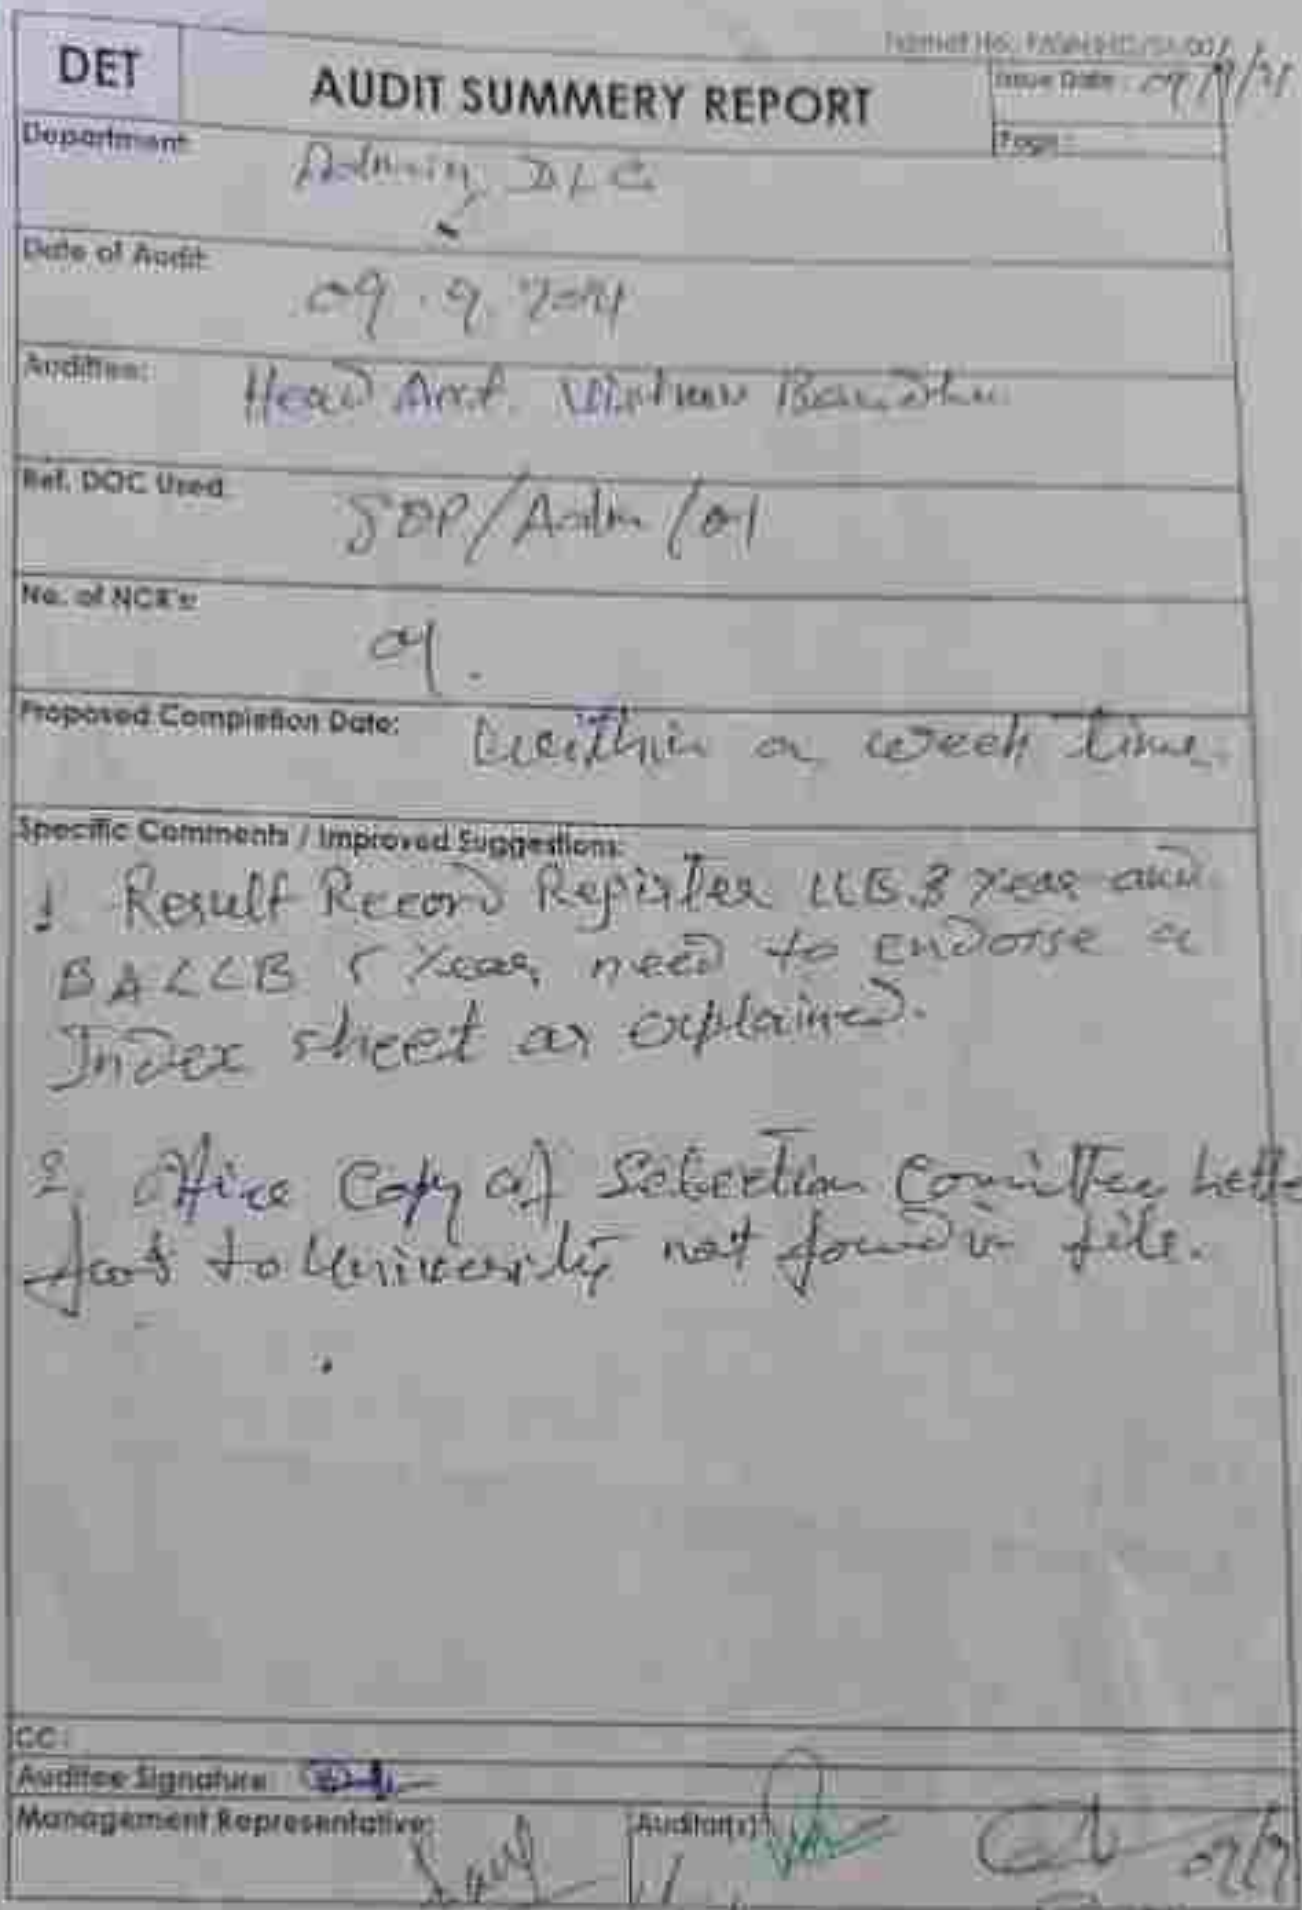 DET
AUDIT SUMMERY REPORT
Issue Date:
Page:
Department
Admin, DLC
Date of Audit
09.9.
Auditee:
Head Asst.
Ref. DOC Used
SOP/Adm/01
No. of NCR's:
Proposed Completion Date: within a week time.
Specific Comments / Improved Suggestions:
1. Result Record Register LLB.3 Year and
BALLB 5 Year, need to endorse a
Index sheet as explained.
2. Office Copy of Selection Comittee
to University not found in file.
CC:
Auditee Signature
Management Representative:
Auditor(s):